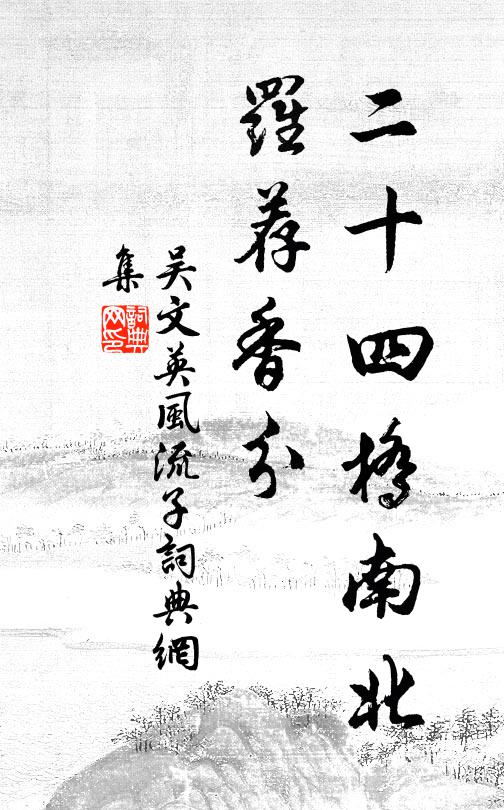 二十四橋南北
羅荐香分
吴文英風流子詞典網
集
詞典网印